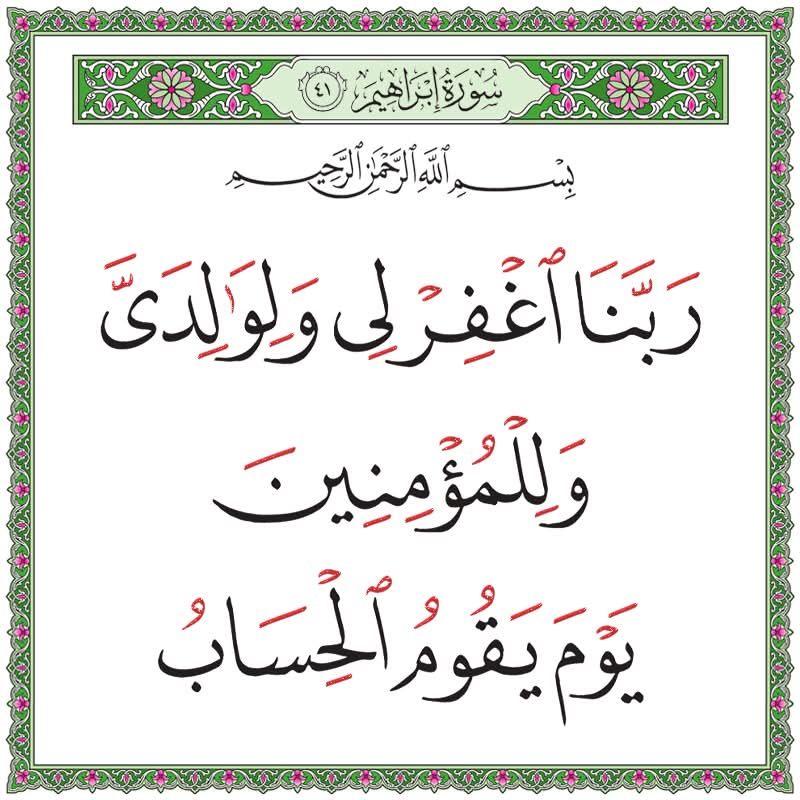 سُورَةُ إِبْرَاهِيمَ ٤١
بِسْمِ ٱللَّهِ ٱلرَّحْمَٰنِ ٱلرَّحِيمِ
رَبَّنَا ٱغْفِرْ لِى وَلِوَٰلِدَىَّ
وَلِلْمُؤْمِنِينَ
يَوْمَ يَقُومُ ٱلْحِسَابُ